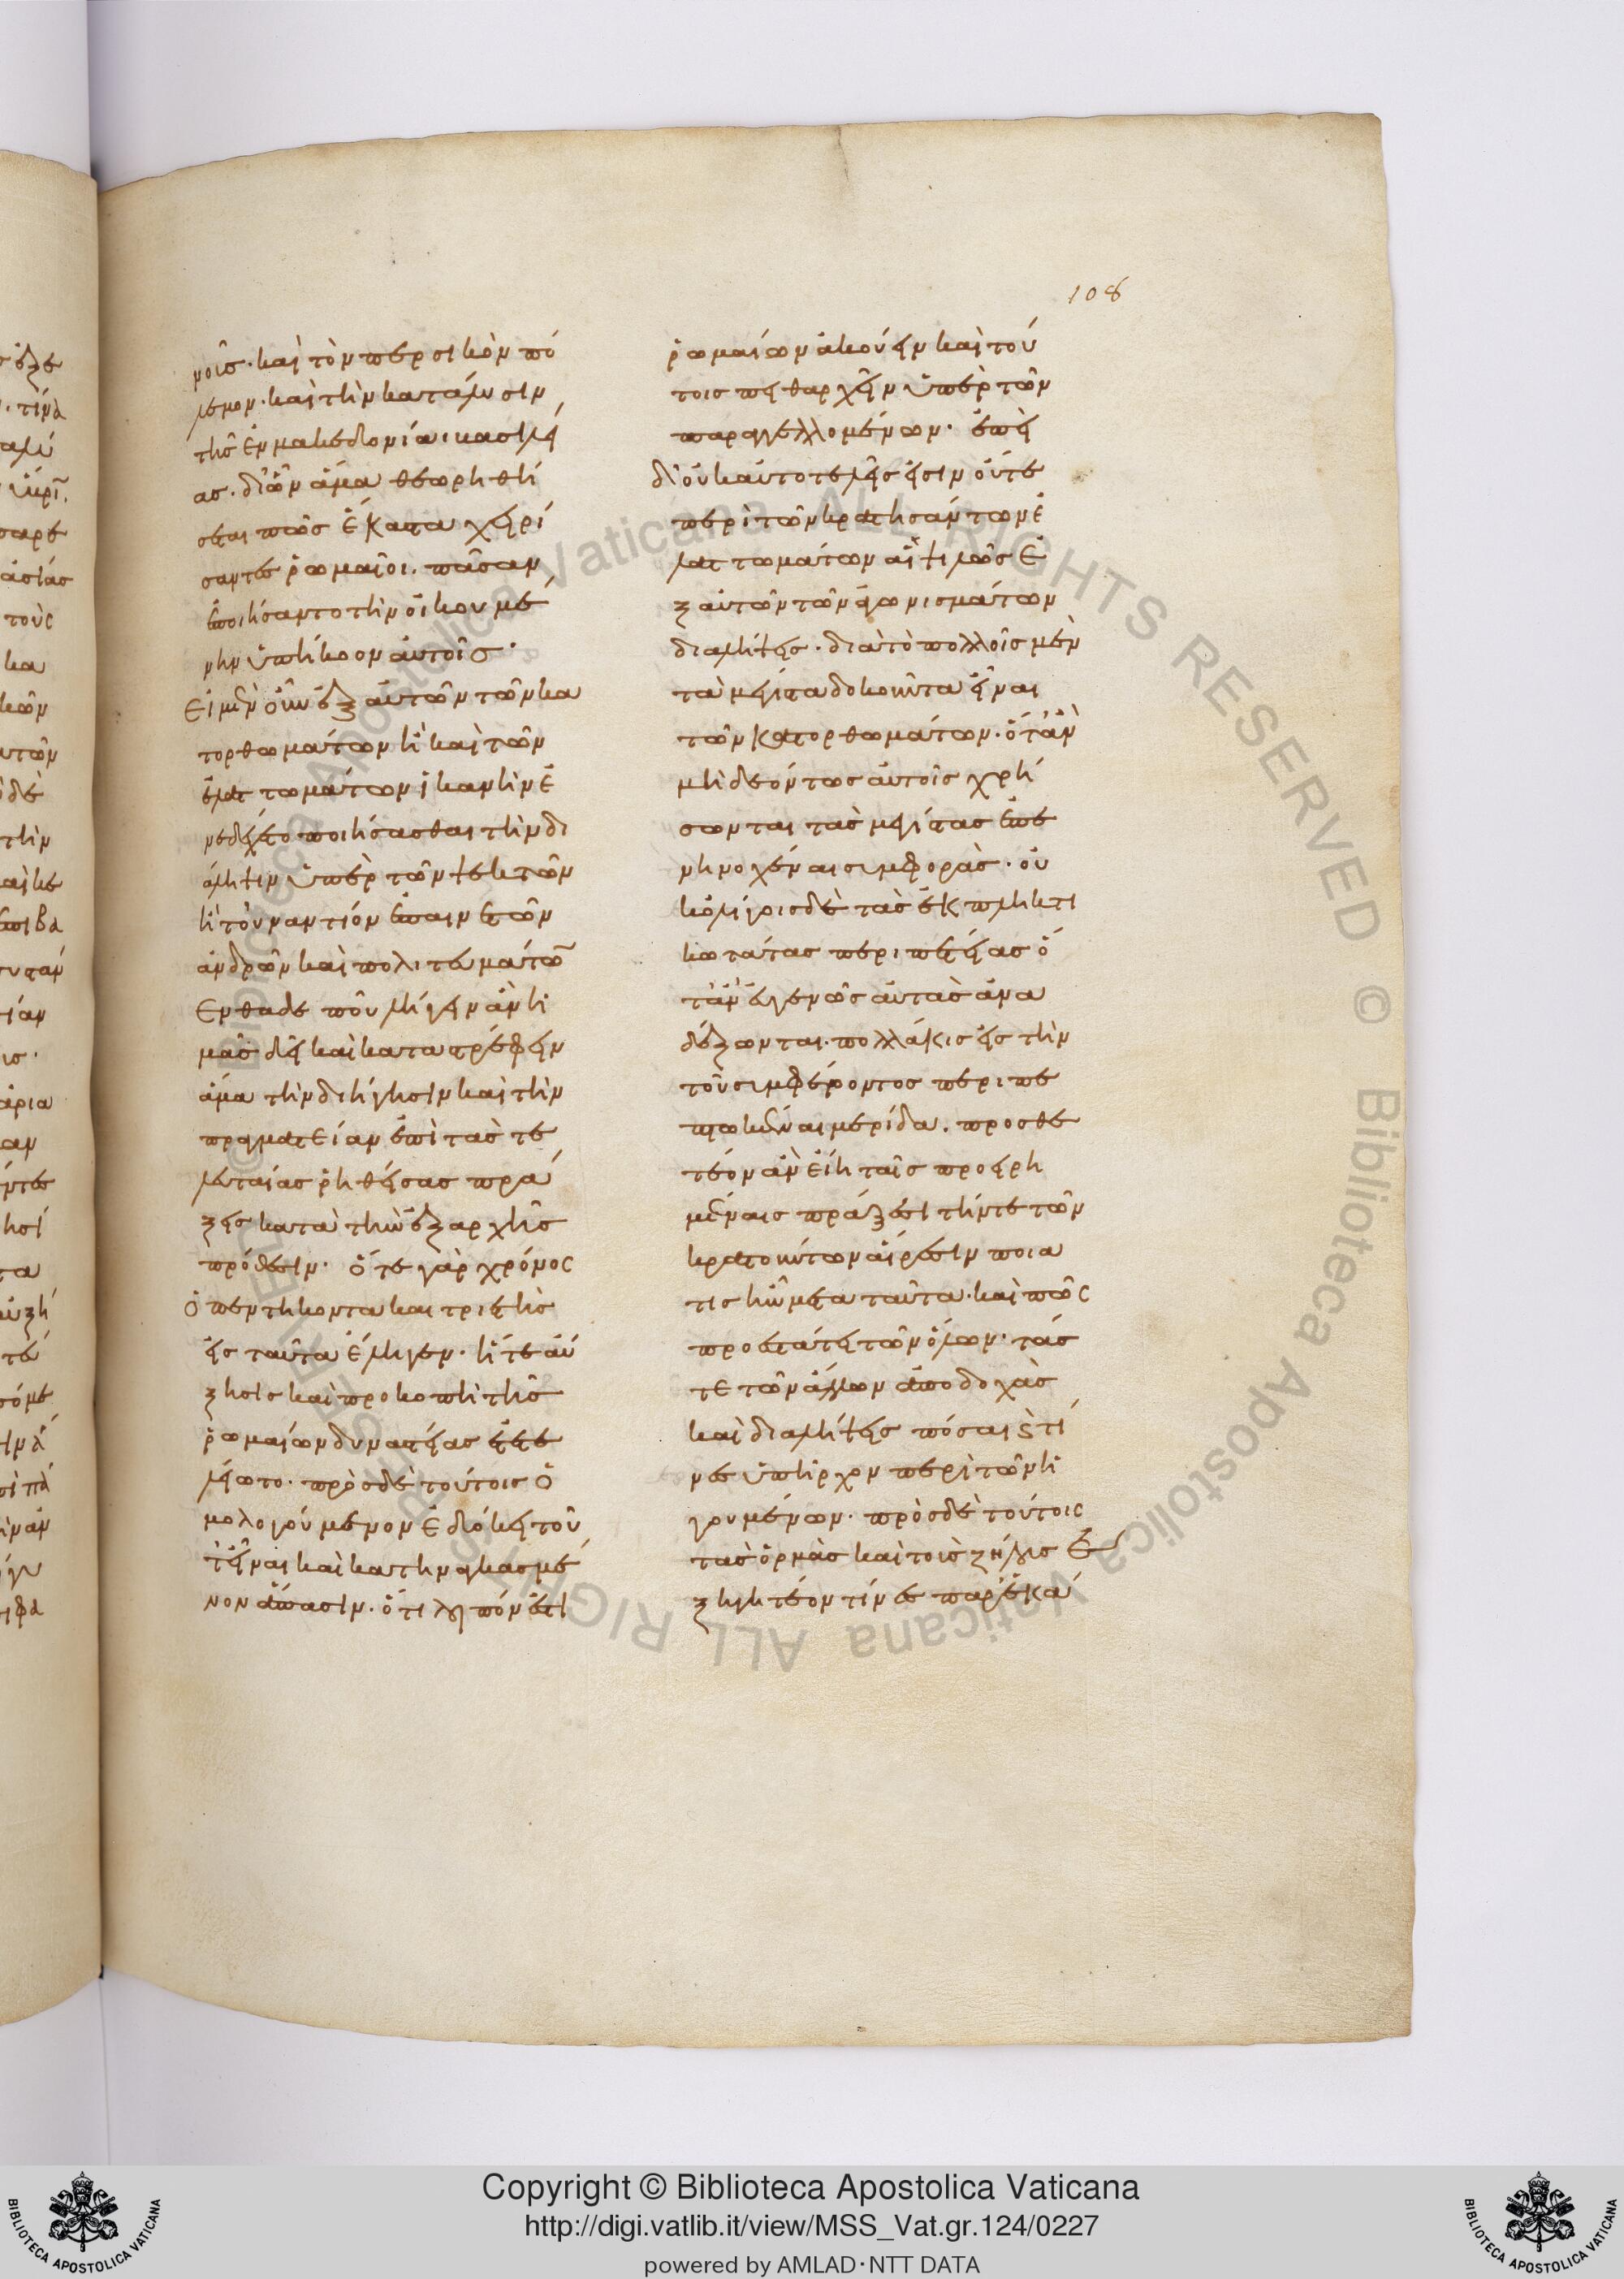 108
νοῖς· καὶ τὸν περσικὸν πό
λεμον· καὶ τὴν κατάλυσιν
τῆς ἐν μακεδονίαι βασιλεί
ας· δι' ὧν ἅμα θεωρηθή
σεται πῶς ἕκαστα χειρί
σαντες ῥωμαῖοι. πᾶσαν
ἐποιήσαντο τὴν οἰκουμέ
νην ὑπήκοον αὐτοῖς·
Εἰ μὲν οὖν ἐξ αὐτῶν τῶν κα
τορθωμάτων ἢ καὶ τῶν
ἐλαττωμάτων ἱκανὴν ἐ
νεδέχετο ποιήσασθαι τὴν δι
άληψιν ὑπὲρ τῶν ψεκτῶν
ἢ τοὐναντίον ἐπαινετῶν
ἀνδρῶν καὶ πολιτευμάτων
Ενθαδε που λήγειν ἂν ἡ
μᾶς δεῖ καὶ καταστρέφειν
ἅμα τὴν διήγησιν καὶ τὴν
πραγματείαν ἐπὶ τὰς τε
λευταίας ῥηθείσας πρά
ξεις κατὰ τὴν ἐξ ἀρχῆς
πρόθεσιν· ὅ τε γὰρ χρόνος
ὁ πεντηκοντακαιτριετὴς
εἰς ταῦτα ἔληγεν· ἥ τε αὔ
ξησις καὶ προκοπὴ τῆς
ῥωμαίων δυναστείας ἐτετε
λείωτο· πρὸς δὲ τούτοις ὁ
μολογούμενον ἐδόκει τοῦ
τ' εἶναι καὶ κατηναγκασμέ
νον ἅπασιν· ὅτι λοιπόν ἐστι
ῥωμαίων ἀκούειν καὶ τού
τοις πειθαρχεῖν ὑπὲρ τῶν
παραγγελλομένων· ἐπεὶ
δ' οὐκ αὐτοτελεῖς εἰσιν οὔτε
περὶ τῶν κρατησάντων ἐ
λαττωμάτων αἱ ψιλῶς ἐ
ξ αὐτῶν τῶν ἀγωνισμάτων
διαλήψεις· διὰ τὸ πολλοῖς μὲν
τὰ μέγιστα δοκοῦντα εἶναι
τῶν κατορθωμάτων· ὅταν
μὴ δεόντως αὐτοῖς χρή
σωνται τὰς μεγίστας ἐπε
νηνοχέναι συμφοράς· οὐ
κ ὀλίγοις δὲ τὰς ἐκπληκτι
κωτάτας περιπετείας ὅ
ταν εὐγενῶς αὐτὰς ἀνα
δέξωνται. πολλάκις εἰς τὴν
τοῦ συμφέροντος περιπε
πτωκέναι μερίδα. προσθε
τέον ἂν εἴη ταῖς προειρη
μέναις πράξεσι τήν τε τῶν
κρατούντων αἵρεσιν ποία
τις ἦν μετα ταῦτα· καὶ πῶς
προεστάτει τῶν ὅλων· τάς
τε τῶν ἄλλων ἀποδοχὰς
καὶ διαλήψεις πόσαι ϛ τί
νες ὑπῆρχον περὶ τῶν ἡ
γουμένων. πρὸς δὲ τούτοις
τὰς ὁρμὰς καὶ τοὺς ζήλους ἐ
ξηγητέον τίνες παρ' ἑκά
Copyright © Biblioteca Apostolica Vaticana
http://digi.vatlib.it/view/MSS_Vat.gr.124/0227
powered by AMLAD·NTT DATA